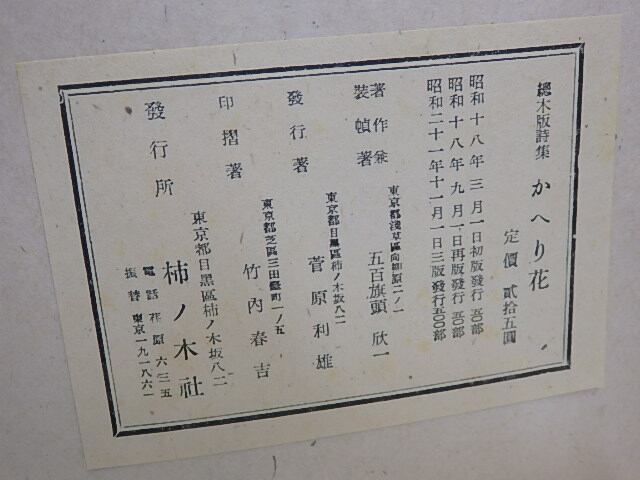 總木版詩集 かへり花
定價 貳拾五圓
昭和十八年三月一日初版發行 五〇部
昭和十八年九月一日再版發行 五〇部
昭和二十一年十一月一日三版發行五〇〇部
著作兼裝幀著
東京都淺草區向柳原二ノ一
五百旗頭欣一
發行著
東京都目黑區柿ノ木坂八二
菅原利雄
印摺著
東京都芝區三田臺町一ノ五
竹內春吉
發行所
東京都目黑區柿ノ木坂八二
柿ノ木社
電話荏原六三五
振替東京一九一八六一